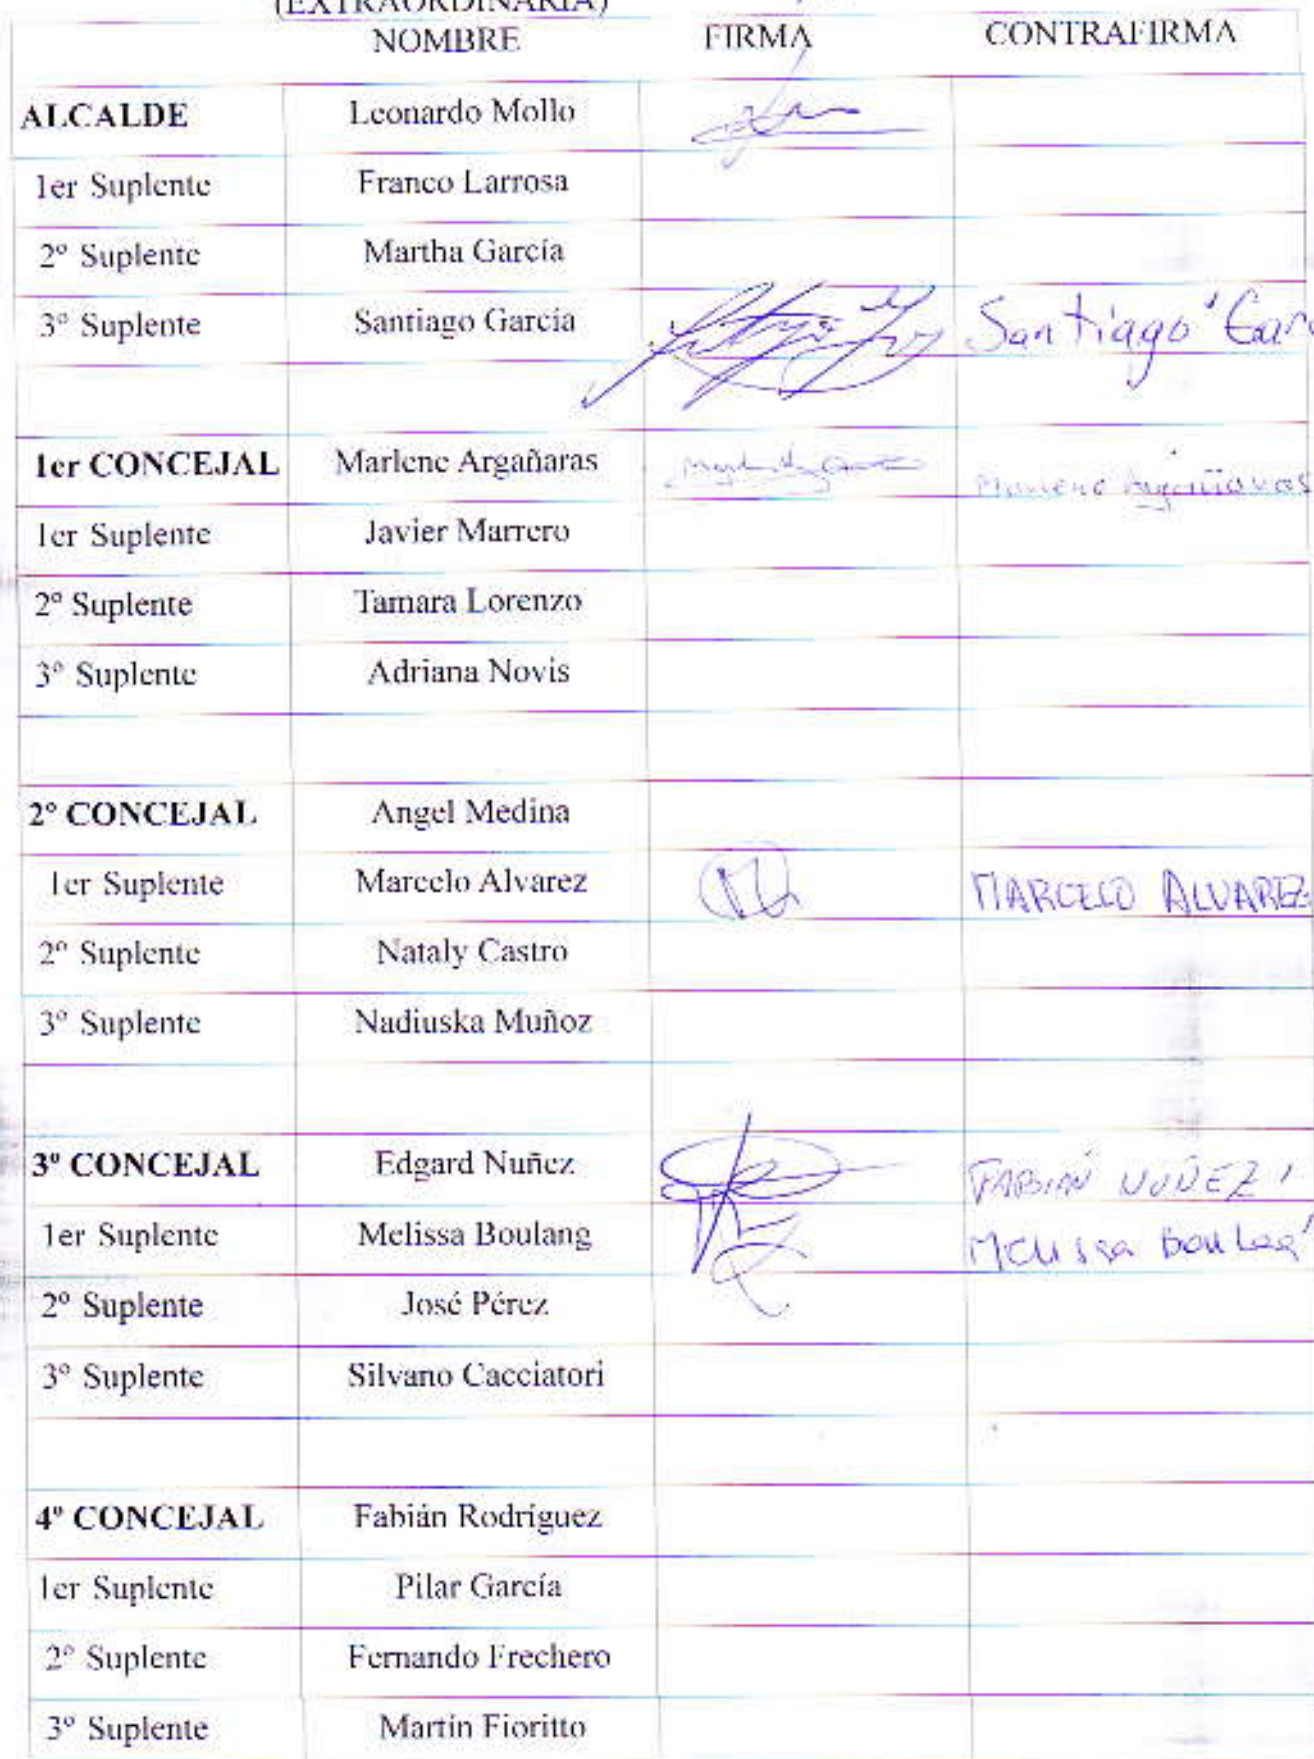 (EXTRAORDINARIA)
NOMBRE FIRMA CONTRAFIRMA
ALCALDE Leonardo Mollo
1er Suplente Franco Larrosa
2º Suplente Martha García
3º Suplente Santiago García Santiago
1er CONCEJAL Marlene Argañaras Marlene Argañaras
1er Suplente Javier Marrero
2º Suplente Tamara Lorenzo
3º Suplente Adriana Novis
2º CONCEJAL Angel Medina
1er Suplente Marcelo Alvarez MARCELO ALVAREZ
2º Suplente Nataly Castro
3º Suplente Nadiuska Muñoz
3º CONCEJAL Edgard Nuñez FABIÁN NÚÑEZ
1er Suplente Melissa Boulang Melissa
2º Suplente José Pérez
3º Suplente Silvano Cacciatori
4º CONCEJAL Fabián Rodríguez
1er Suplente Pilar García
2º Suplente Fernando Frechero
3º Suplente Martín Fioritto